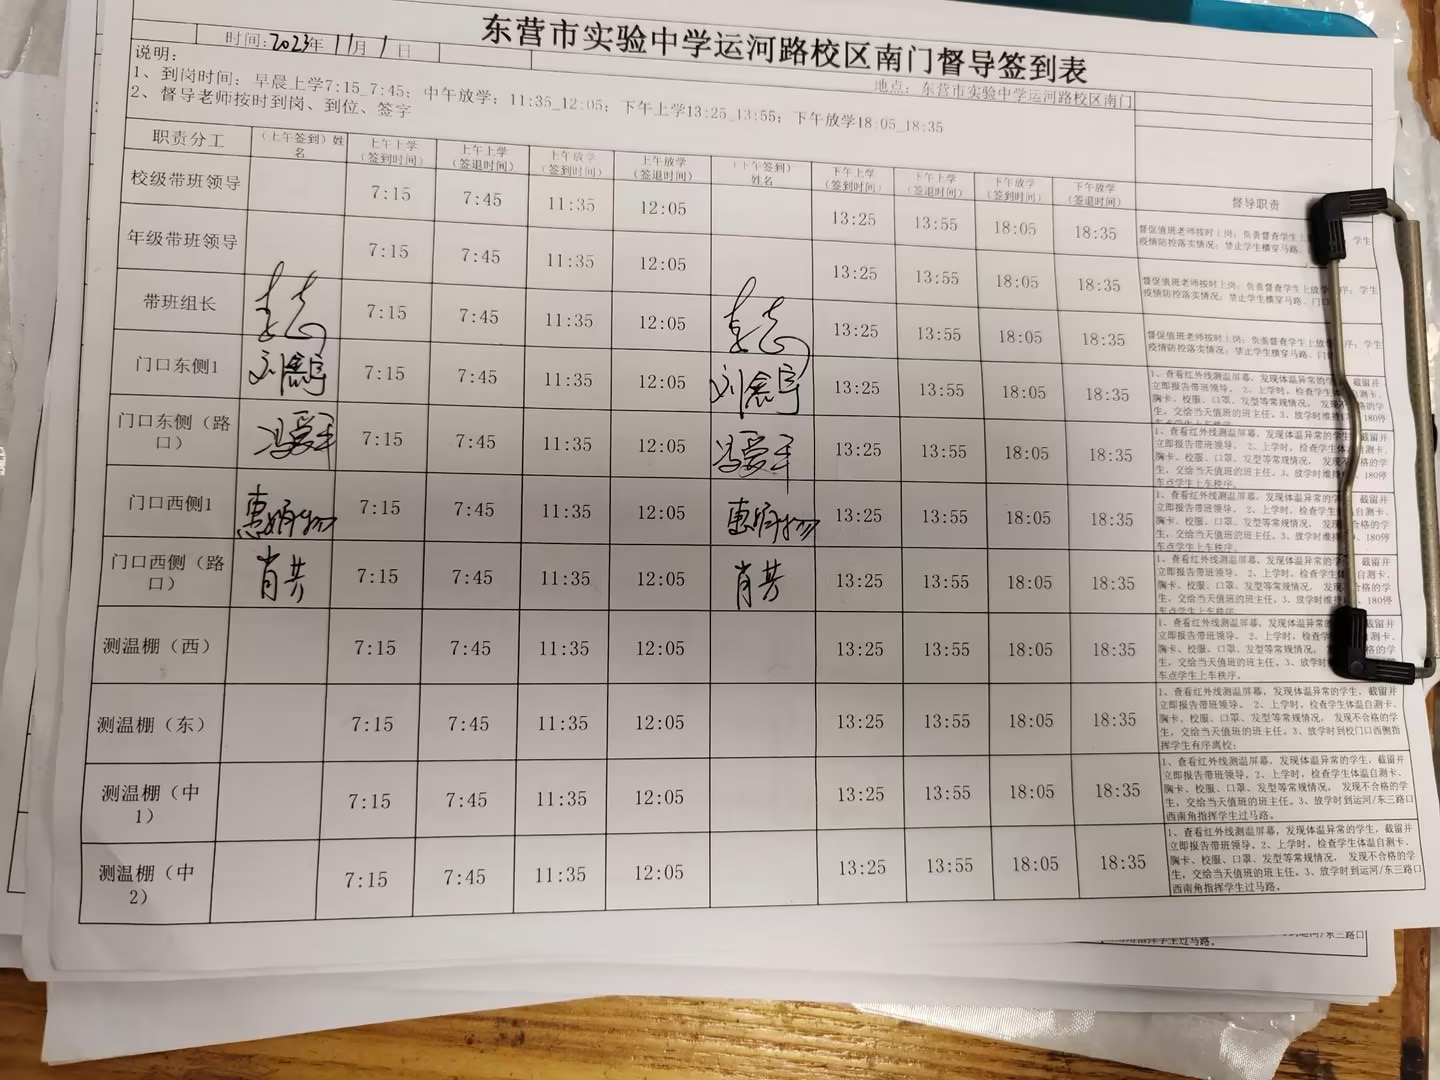 东营市实验中学运河路校区南门督导签到表
时间:2023年 11月 1日
地点：东营市实验中学运河路校区南门
说明:
1、到岗时间：早晨上学7:15_7:45；中午放学：11:35_12:05；下午上学13:25_13:55；下午放学18:05_18:35
2、督导老师按时到岗、到位、签字
职责分工 （上午签到）姓名 上午上学（签到时间） 上午上学（签退时间） 上午放学（签到时间） 上午放学（签退时间） （下午签到）姓名 下午上学（签到时间） 下午上学（签退时间） 下午放学（签到时间） 下午放学（签退时间） 督导职责
校级带班领导 7:15 7:45 11:35 12:05 13:25 13:55 18:05 18:35
督促值班老师按时上岗；负责督查学生上 学生
疫情防控落实情况；禁止学生横穿马路、
年级带班领导 7:15 7:45 11:35 12:05 13:25 13:55 18:05 18:35
督促值班老师按时上岗；负责督查学生上放学 序；学生
疫情防控落实情况；禁止学生横穿马路、门口
带班组长 7:15 7:45 11:35 12:05 13:25 13:55 18:05 18:35
督促值班老师按时上岗；负责督查学生上放 序；学生
疫情防控落实情况；禁止学生横穿马路、门
门口东侧1 刘鑫宇 7:15 7:45 11:35 12:05 刘鑫宇 13:25 13:55 18:05 18:35
1、查看红外线测温屏幕，发现体温异常的学 截留并
立即报告带班领导。 2、上学时，检查学生体 自测卡、
胸卡、校服、口罩、发型等常规情况， 发现 合格的学
生，交给当天值班的班主任。3、放学时维持 180停
车点学生上车秩序。
门口东侧（路口） 冯爱军 7:15 7:45 11:35 12:05 冯爱军 13:25 13:55 18:05 18:35
1、查看红外线测温屏幕，发现体温异常的学 截留并
立即报告带班领导。 2、上学时，检查学生体 自测卡、
胸卡、校服、口罩、发型等常规情况， 发现 合格的学
生，交给当天值班的班主任。3、放学时维持 、180停
车点学生上车秩序。
门口西侧1 7:15 7:45 11:35 12:05 13:25 13:55 18:05 18:35
1、查看红外线测温屏幕，发现体温异常的学 截留并
立即报告带班领导。 2、上学时，检查学生体温自测卡、
胸卡、校服、口罩、发型等常规情况， 发现 合格的学
生，交给当天值班的班主任。3、放学时维持 、180停
车点学生上车秩序。
门口西侧（路口） 肖芳 7:15 7:45 11:35 12:05 肖芳 13:25 13:55 18:05 18:35
1、查看红外线测温屏幕，发现体温异常的学生 截留并
立即报告带班领导。 2、上学时，检查学生体 自测卡、
胸卡、校服、口罩、发型等常规情况， 发现 合格的学
生，交给当天值班的班主任。3、放学时维持 、180停
车点学生上车秩序。
测温棚（西） 7:15 7:45 11:35 12:05 13:25 13:55 18:05 18:35
1、查看红外线测温屏幕，发现体温异常的学 截留并
立即报告带班领导。 2、上学时，检查学生体 自测卡、
胸卡、校服、口罩、发型等常规情况， 发 格的学
生，交给当天值班的班主任。3、放学时维持
车点学生上车秩序。
测温棚（东） 7:15 7:45 11:35 12:05 13:25 13:55 18:05 18:35
1、查看红外线测温屏幕，发现体温异常的学生，截留并
立即报告带班领导。 2、上学时，检查学生体温自测卡、
胸卡、校服、口罩、发型等常规情况， 发现不合格的学
生，交给当天值班的班主任。3、放学时到校门口西侧指
挥学生有序离校；
测温棚（中1） 7:15 7:45 11:35 12:05 13:25 13:55 18:05 18:35
1、查看红外线测温屏幕，发现体温异常的学生，截留并
立即报告带班领导。2、上学时，检查学生体温自测卡、
胸卡、校服、口罩、发型等常规情况， 发现不合格的学
生，交给当天值班的班主任。3、放学时到运河/东三路口
西南角指挥学生过马路。
测温棚（中2） 7:15 7:45 11:35 12:05 13:25 13:55 18:05 18:35
1、查看红外线测温屏幕，发现体温异常的学生，截留并
立即报告带班领导。2、上学时，检查学生体温自测卡、
胸卡、校服、口罩、发型等常规情况， 发现不合格的学
生，交给当天值班的班主任。3、放学时到运河/东三路口
西南角指挥学生过马路。